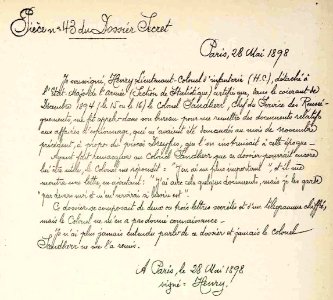 Pièce n° 43 du Dossier Secret
Paris, 28 Mai 1898
Je soussigné, Henry Lieutenant-Colonel d'infanterie (H.C.), détaché à
l'Etat-Major de l'armée (Section de Statistique) certifie que, dans le courant de
Décembre 1894 (le 15 ou le 16) le Colonel Sandherr, Chef du Service des Rensei-
gnements, me fit appeler dans son bureau pour me remettre des documents relatifs
aux affaires d'espionnage, qui lui avaient été demandés au mois de Novembre
précédent, à propos du procès Dreyfus, que l'on instruisait à cette époque.
Ayant fait remarquer au Colonel Sandherr que ce dossier pouvait encore
lui être utile, le Colonel me répondit : "J'ai eu plus important", et il me
montra une lettre, en ajoutant : "J'ai encore quelques documents, mais je les garde
par devers moi et m'en servirai s'il en est besoin."
Ce dossier se composait de deux ou trois lettres secrètes et d'un télégramme chiffré,
mais le Colonel ne m'en a pas donné connaissance.
Je n'ai plus jamais entendu parler de ce dossier et jamais le Colonel
Sandherr ne me l'a remis.
A Paris, le 28 Mai 1898
signé : Henry.